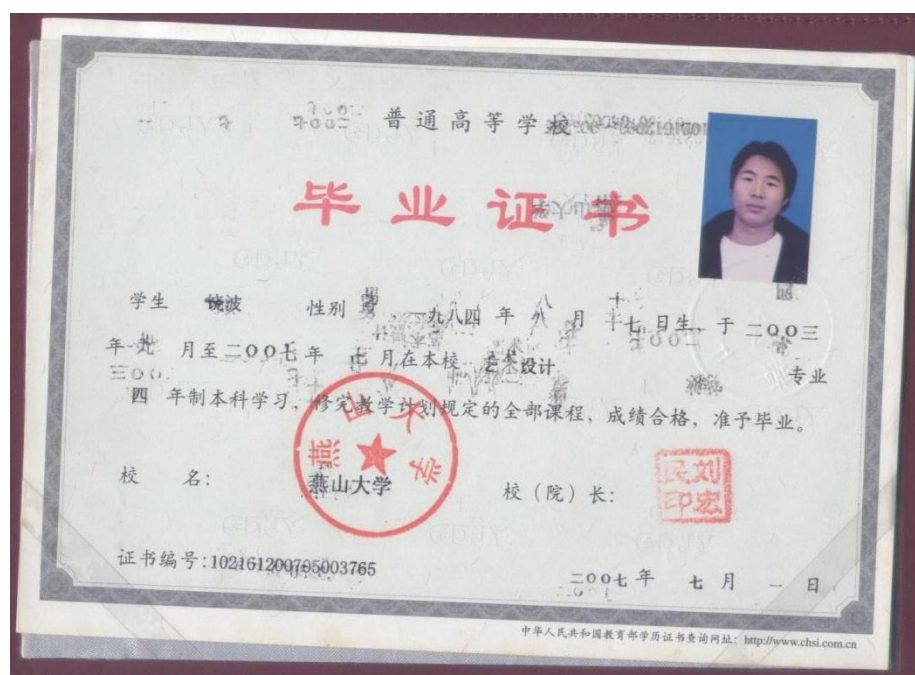 普通高等学校
毕业证书
学生 饶波 性别 男，一九八四年八月十七日生，于二〇〇三
年九月至二〇〇七年七月在本校 艺术设计 专业
四年制本科学习，修完教学计划规定的全部课程，成绩合格，准予毕业。
燕山大学
校 名：燕山大学 校（院）长：刘宏民印
证书编号：102161200705003765
二〇〇七年 七月 一日
中华人民共和国教育部学历证书查询网址：http://www.chsi.com.cn